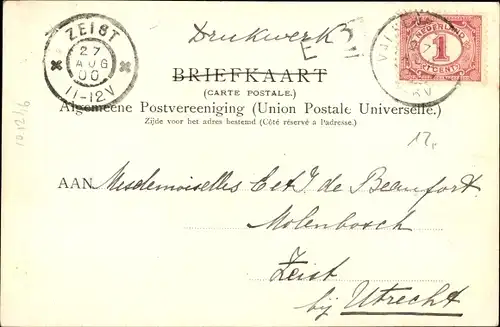 ZEIST
27
AUG
00
11-12V
Drukwerk
NEDERLAND
1
CENT
BRIEFKAART
(CARTE POSTALE.)
Algemeene Postvereeniging (Union Postale Universelle.)
Zijde voor het adres bestemd (Côté réservé a l'adresse.)
12,
AAN Mesdemoiselles E et J. de Beaufort
Molenbosch
Zeist
bij Utrecht